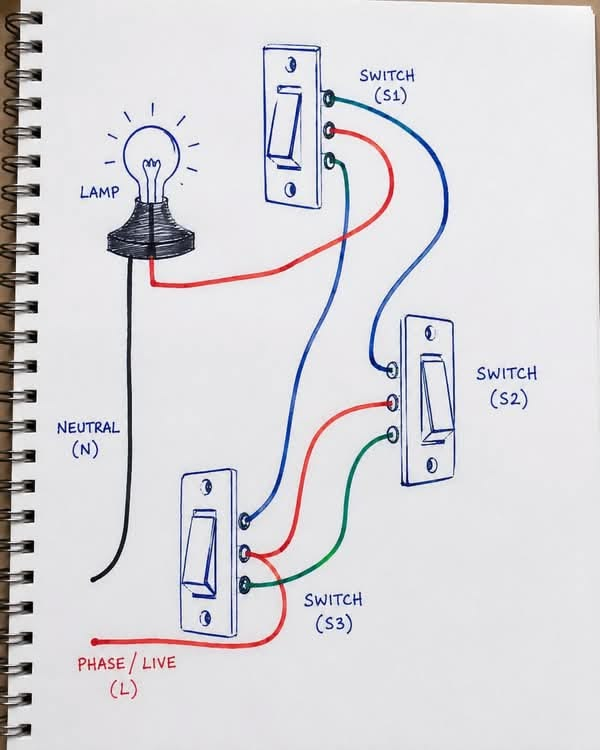 SWITCH
(S1)
LAMP
SWITCH
(S2)
NEUTRAL
(N)
SWITCH
(S3)
PHASE/LIVE
(L)